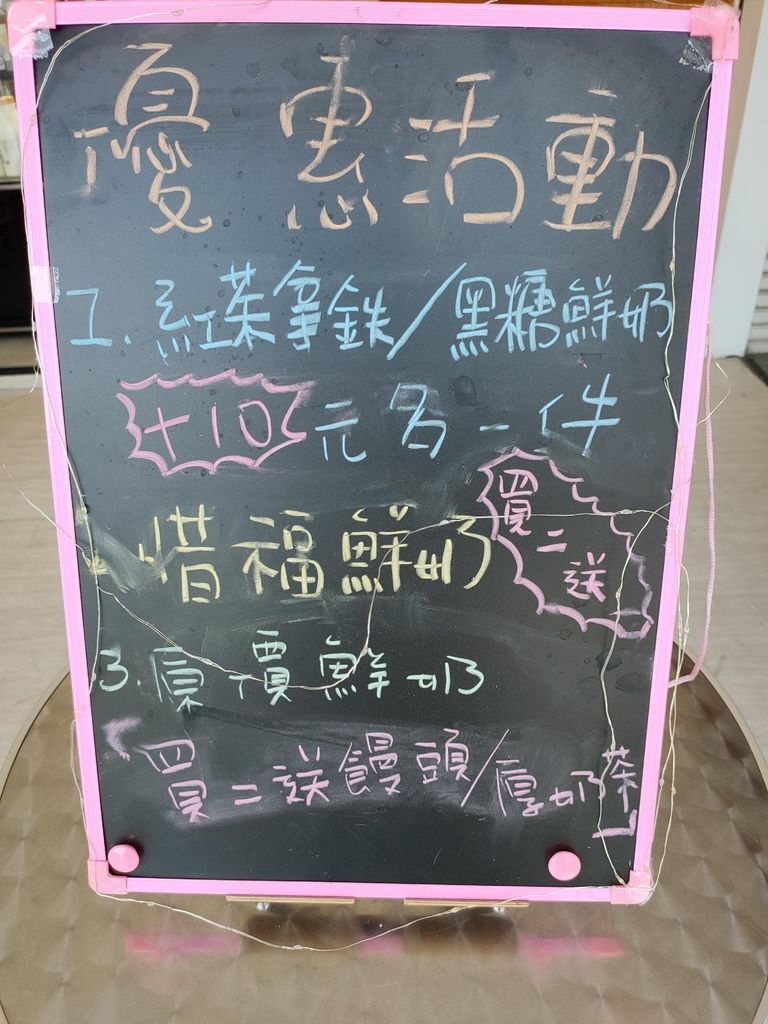 優惠活動
1.紅茶拿鐵/黑糖鮮奶
+10元多一件
惜福鮮奶 買二送一
3.原價鮮奶
「買二送饅頭/厚奶茶」